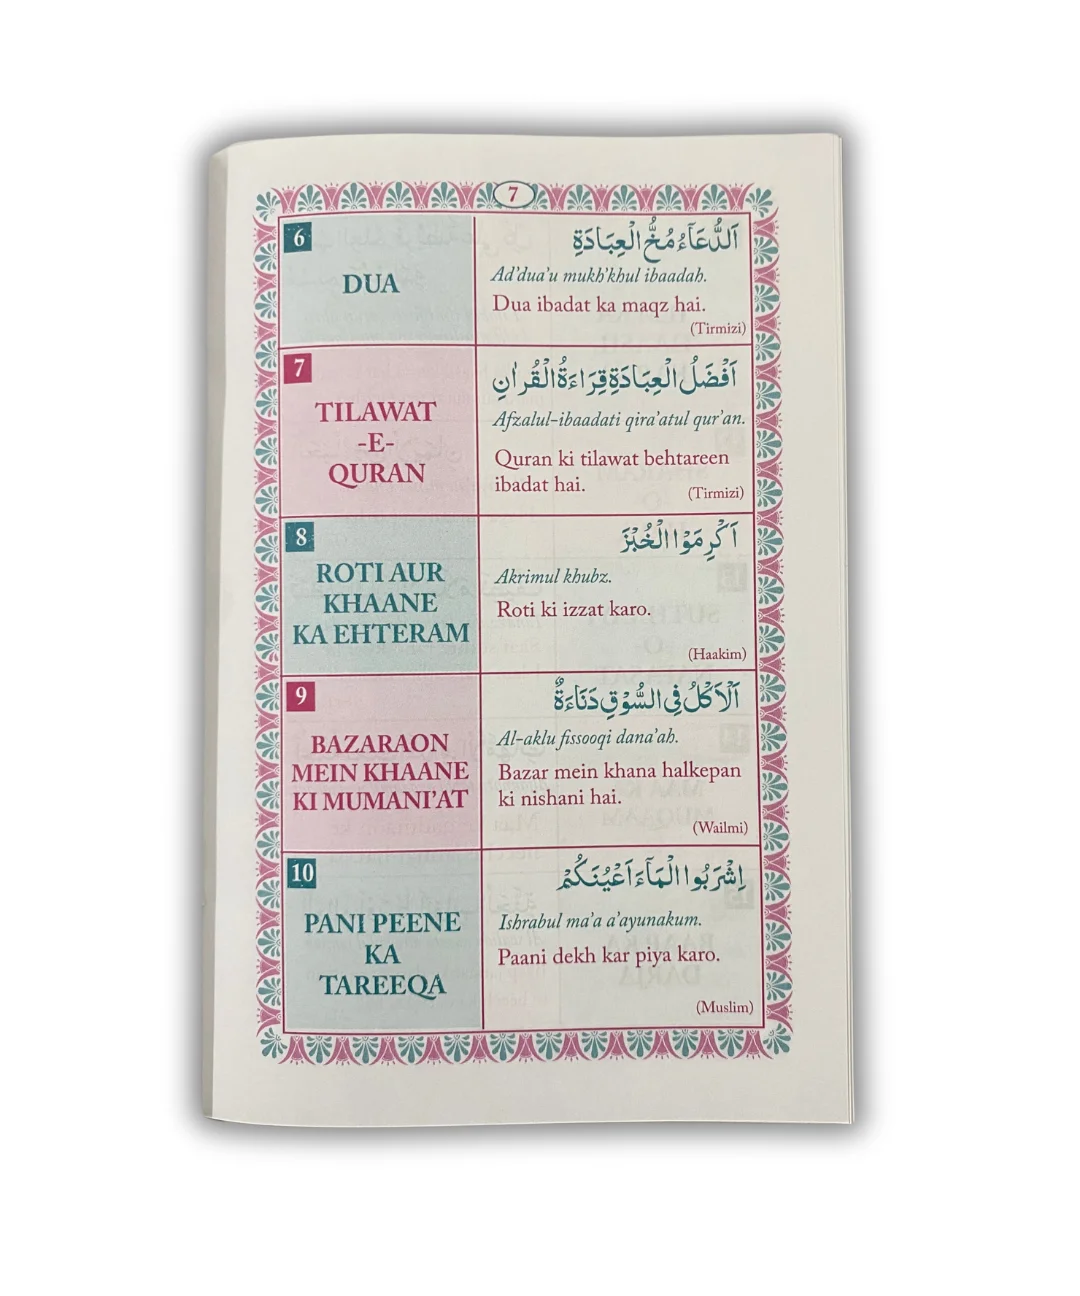 7
6
DUA
اَلدُّعَآءُ مُخُّ الْعِبَادَةِ
Ad'dua'u mukh'khul ibaadah.
Dua ibadat ka maqz hai.
(Tirmizi)
7
TILAWAT
-E-
QURAN
اَفْضَلُ الْعِبَادَةِ قِرَاءَةُ الْقُرْاٰنِ
Afzalul-ibaadati qira'atul qur'an.
Quran ki tilawat behtareen
ibadat hai.
(Tirmizi)
8
ROTI AUR
KHAANE
KA EHTERAM
اَكْرِمَوْا الْخُبْزَ
Akrimul khubz.
Roti ki izzat karo.
(Haakim)
9
BAZARAON
MEIN KHAANE
KI MUMANI'AT
اَلْاَكْلُ فِى السُّوْقِ دَنَاءَةٌ
Al-aklu fissooqi dana'ah.
Bazar mein khana halkepan
ki nishani hai.
(Wailmi)
10
PANI PEENE
KA
TAREEQA
اِشْرَبُوا الْمَآءَ اَعْيُنَكُمْ
Ishrabul ma'a a'ayunakum.
Paani dekh kar piya karo.
(Muslim)